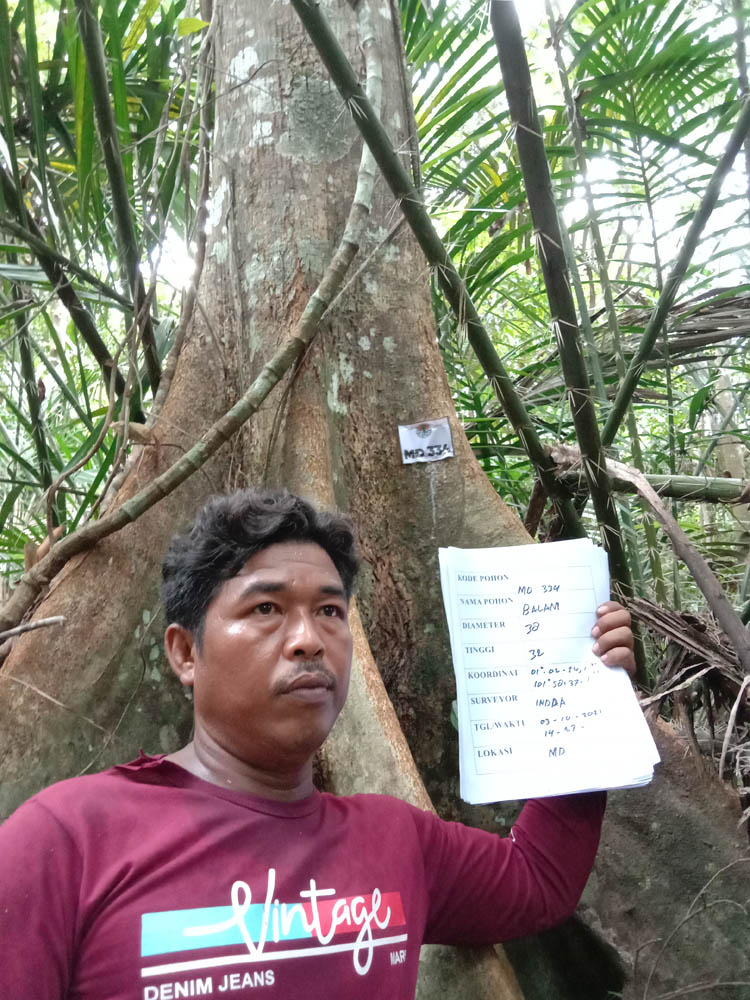 MD 334
KODE POHON MD 334
NAMA POHON BALAM
DIAMETER 38
TINGGI 32
KOORDINAT 01°. 02. 
101° 58. 37.
SURVEYOR INDRA
TGL/WAKTU 03-10-2021
14-27-
LOKASI MD
Vintage
DENIM JEANS